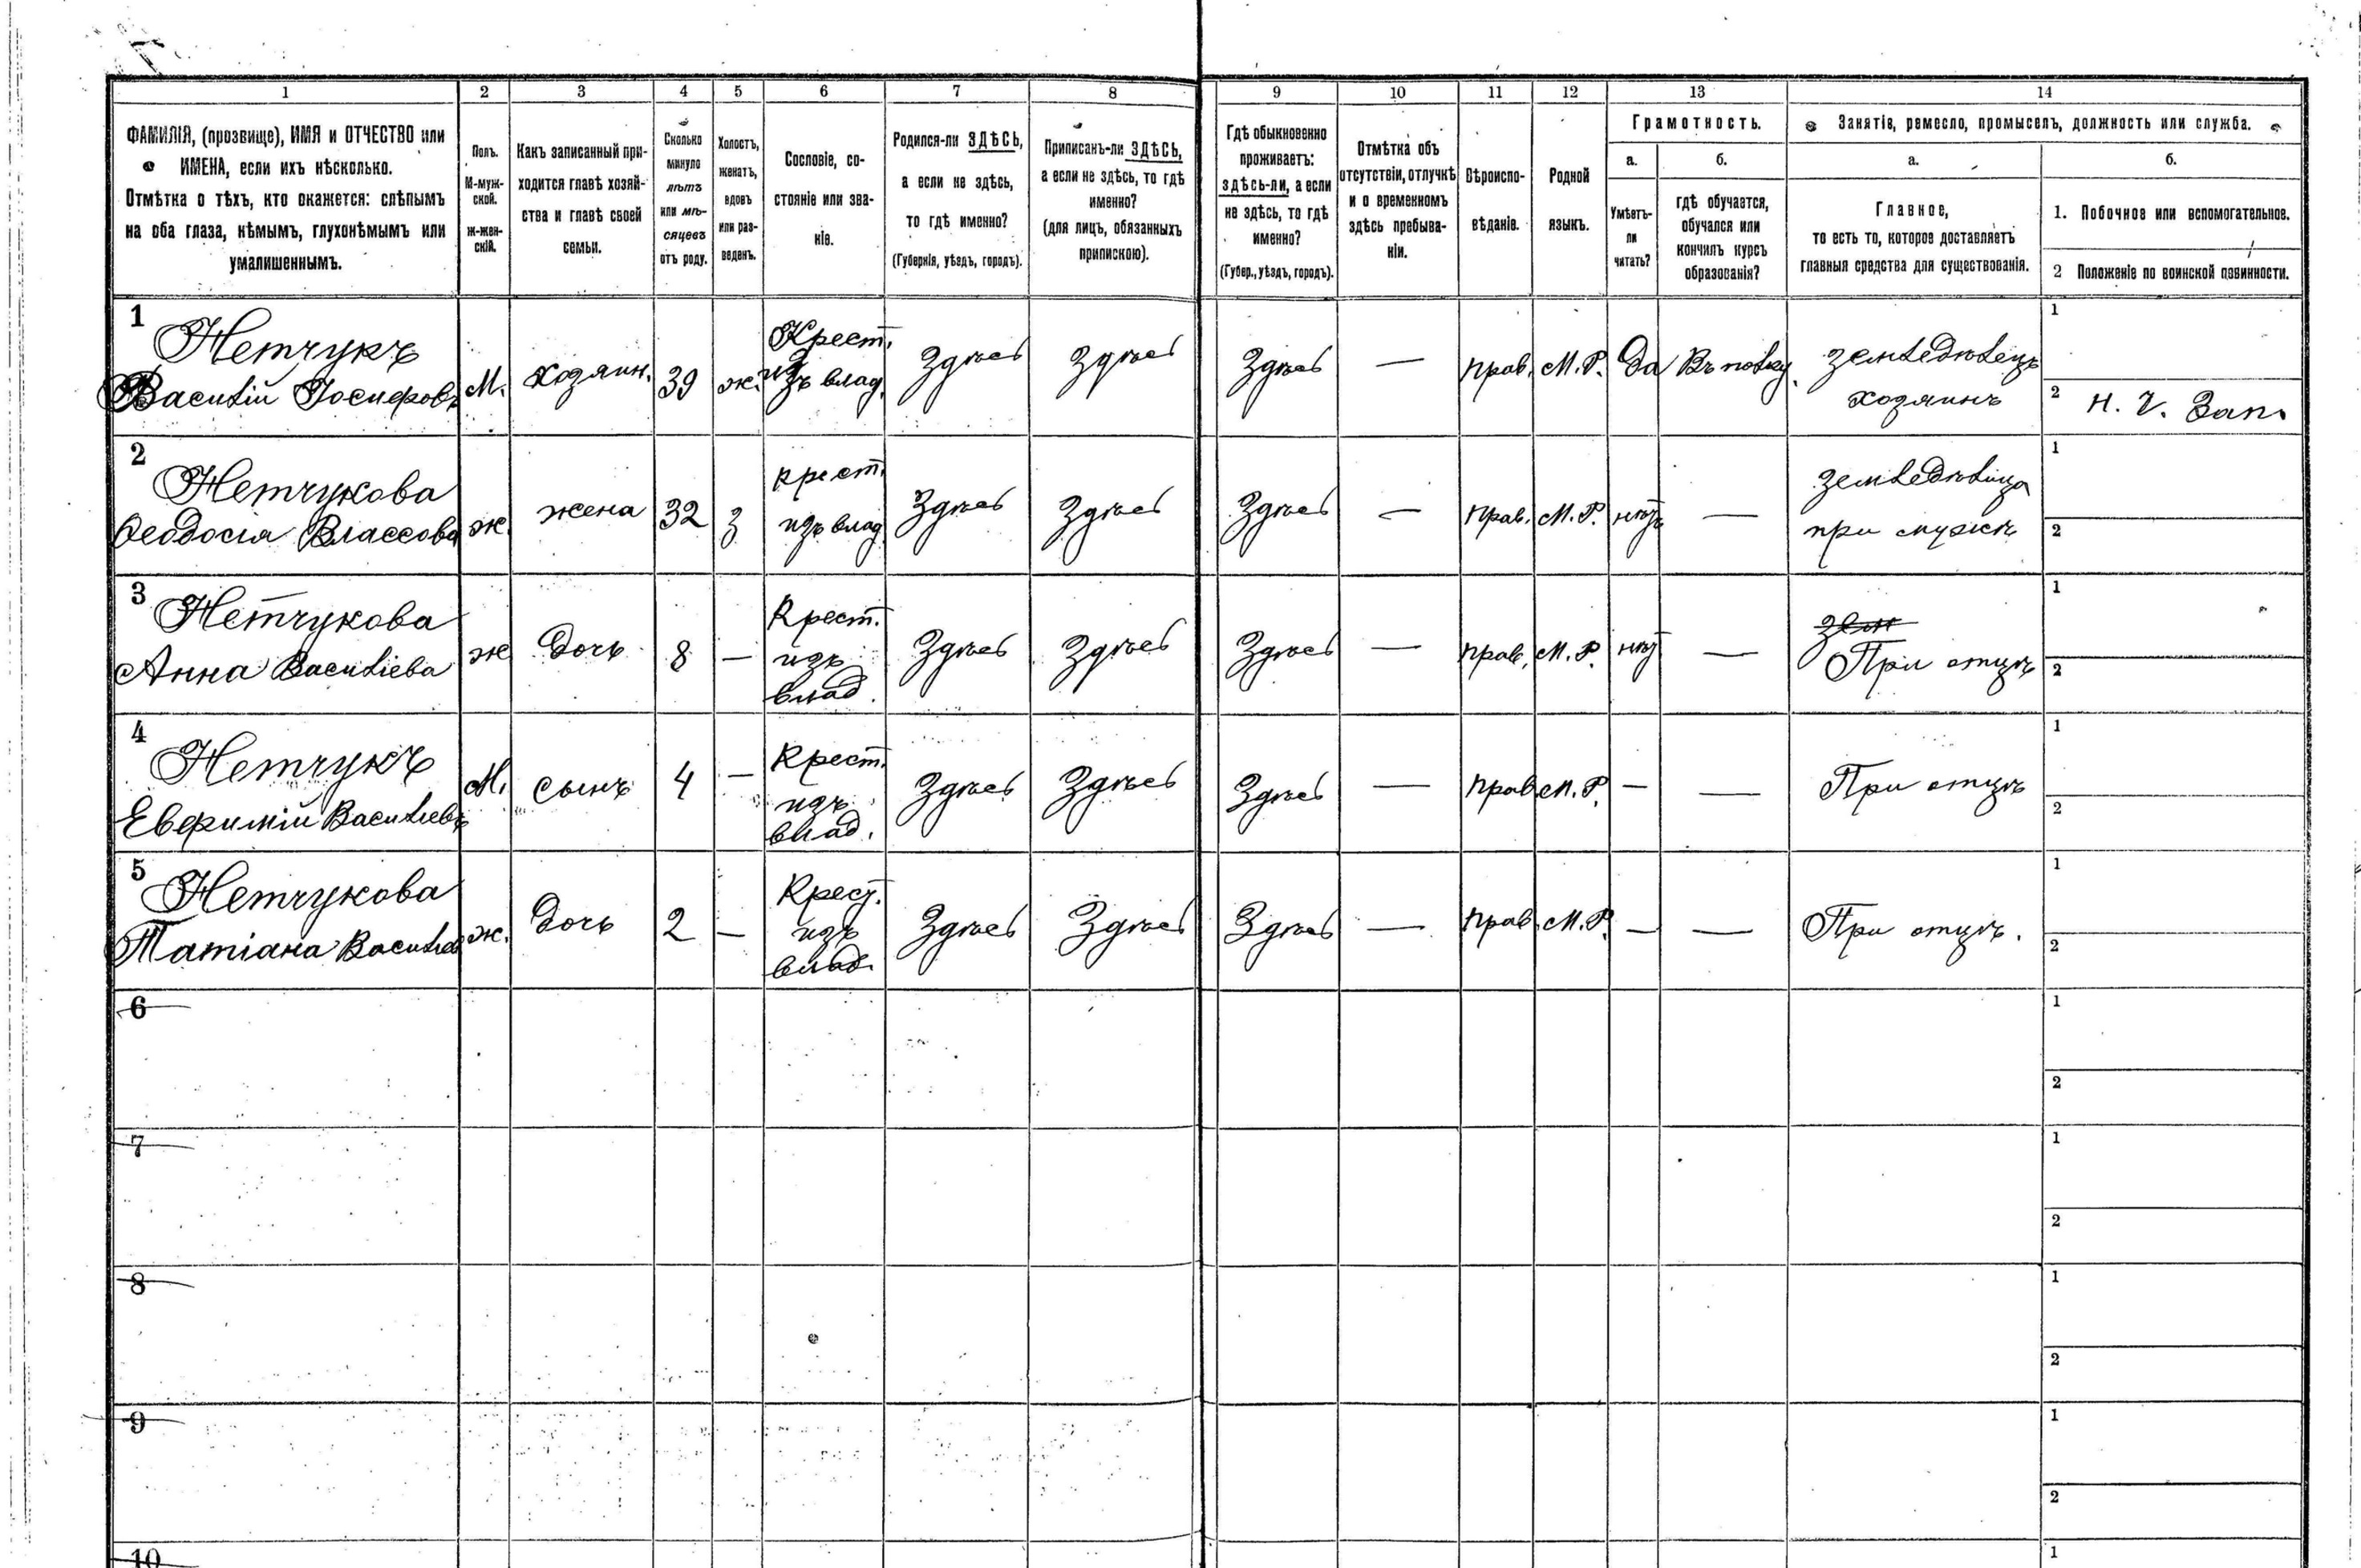 1 2 3 4 5 6 7 8 9 10 11 12 13 14
ФАМИЛІЯ, (прозвище), ИМЯ и ОТЧЕСТВО или
ИМЕНА, если ихъ нѣсколько.
Отмѣтка о тѣхъ, кто окажется: слѣпымъ
на оба глаза, нѣмымъ, глухонѣмымъ или
умалишеннымъ.
Полъ.
М-муж-
ской.
ж-жен-
скій.
Какъ записанный при-
ходится главѣ хозяй-
ства и главѣ своей
семьи.
Сколько
минуло
лѣтъ
или мѣ-
сяцевъ
отъ роду.
Холостъ,
женатъ,
вдовъ
или раз-
веденъ.
Сословіе, со-
стояніе или зва-
ніе.
Родился-ли ЗДѢСЬ,
а если не здѣсь,
то гдѣ именно?
(Губернія, уѣздъ, городъ).
Приписанъ-ли ЗДѢСЬ,
а если не здѣсь, то гдѣ
именно?
(для лицъ, обязанныхъ
припискою).
Гдѣ обыкновенно
проживаетъ:
здѣсь-ли, а если
не здѣсь, то гдѣ
именно?
(Губер., уѣздъ, городъ).
Отмѣтка объ
отсутствіи, отлучкѣ
и о временномъ
здѣсь пребыва-
ніи.
Вѣроиспо-
вѣданіе.
Родной
языкъ.
Грамотность.
а.
Умѣетъ-
ли
читать?
б.
гдѣ обучается,
обучался или
кончилъ курсъ
образованія?
Занятіе, ремесло, промыселъ, должность или служба.
а.
Главное,
то есть то, которое доставляетъ
главныя средства для существованія.
б.
1. Побочное или вспомогательное.
2 Положеніе по воинской повинности.
1
Нетчукъ
Василій Іосифовъ
М.
хозяин.
39
ж.
Крест.
изъ влад.
Здѣсь
Здѣсь
Здѣсь
—
прав.
М. Р.
Да
земледѣлецъ
хозяинъ
1
2 Н. Ч. Зап.
2
Нетчукова
Ѳеодосія Влассова
ж.
жена
32
З
крест.
изъ влад
Здѣсь
Здѣсь
Здѣсь
—
прав.
М. Р.
нѣтъ
—
земледѣлица
при мужѣ
1
2
3
Нетчукова
Анна Василіева
ж
дочь
8
—
Крест.
изъ
влад.
Здѣсь
Здѣсь
Здѣсь
—
прав.
М. Р.
нѣт
—
зем
При отцѣ
1
2
4
Нетчукъ
Евфимій Василіевъ
М.
сынъ
4
—
Крест.
изъ
влад.
Здѣсь
Здѣсь
Здѣсь
—
прав
М. Р.
—
—
При отцѣ
1
2
5
Нетчукова
Татіана Василіев
ж.
дочь
2
—
Крест.
изъ
влад.
Здѣсь
Здѣсь
Здѣсь
—
прав.
М. Р.
—
—
При отцѣ.
1
2
6
1
2
7
1
2
8
1
2
9
1
2
10
1